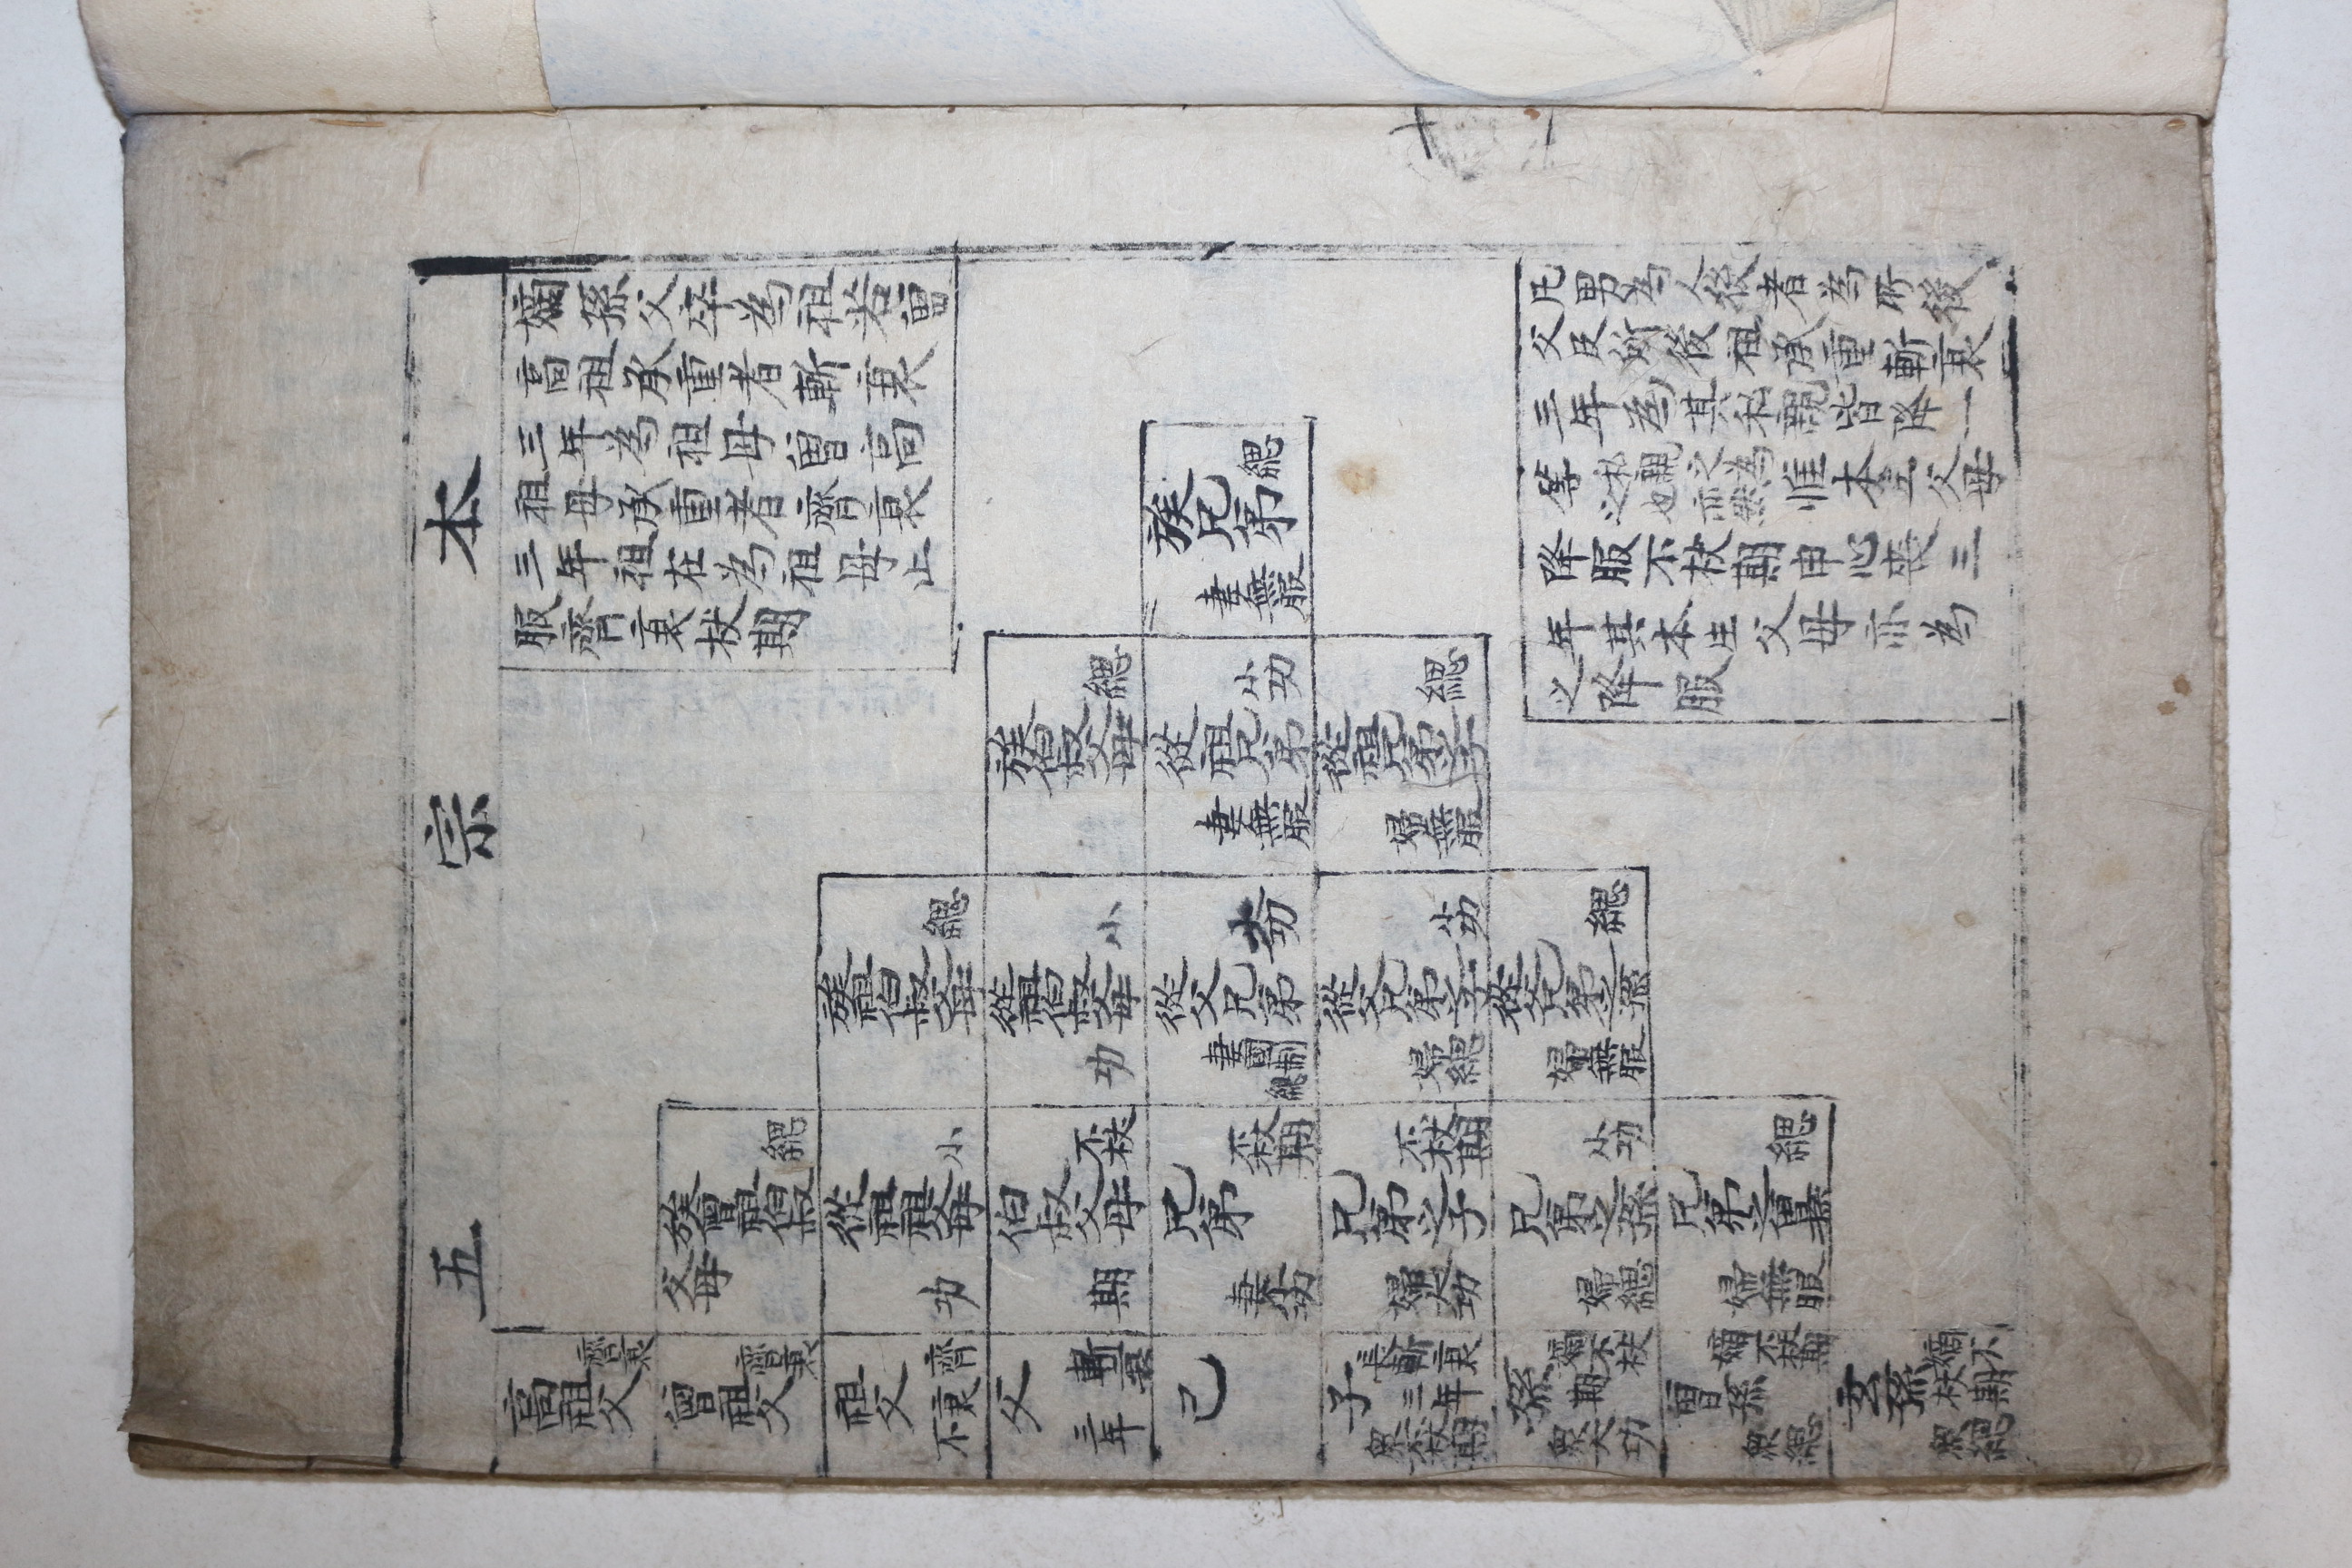 本宗五
嫡孫父卒為祖若曾
高祖承重者斬衰
三年為祖母曾高
祖母承重者齊衰
三年祖在為祖母止
服齊衰杖期
凡男為人後者為所後
父及所後祖承重斬衰
三年為其私親皆降一
等私親之為之也亦然惟本生父母
降服不杖期申心喪三
年其本生父母亦為
之降服
族兄弟緦
妻無服
族伯叔父母緦
從祖兄弟小功
妻無服
從祖兄弟之子緦
婦無服
族祖伯叔父母緦
從祖伯叔父母小功
從父兄弟大功
妻國制緦
從父兄弟之子小功
婦緦
從父兄弟之孫緦
婦無服
族曾祖伯叔父母緦
從祖祖父母小功
伯叔父母不杖期
兄弟不杖期
妻小功
兄弟之子不杖期
婦大功
兄弟之孫小功
婦緦
兄弟之曾孫緦
婦無服
高祖父齊衰
曾祖父齊衰
祖父齊衰不
父斬衰三年
己
子長斬衰三年
衆不杖期
孫嫡不杖期
衆大功
曾孫嫡不杖期
衆緦
玄孫嫡不杖期
衆緦